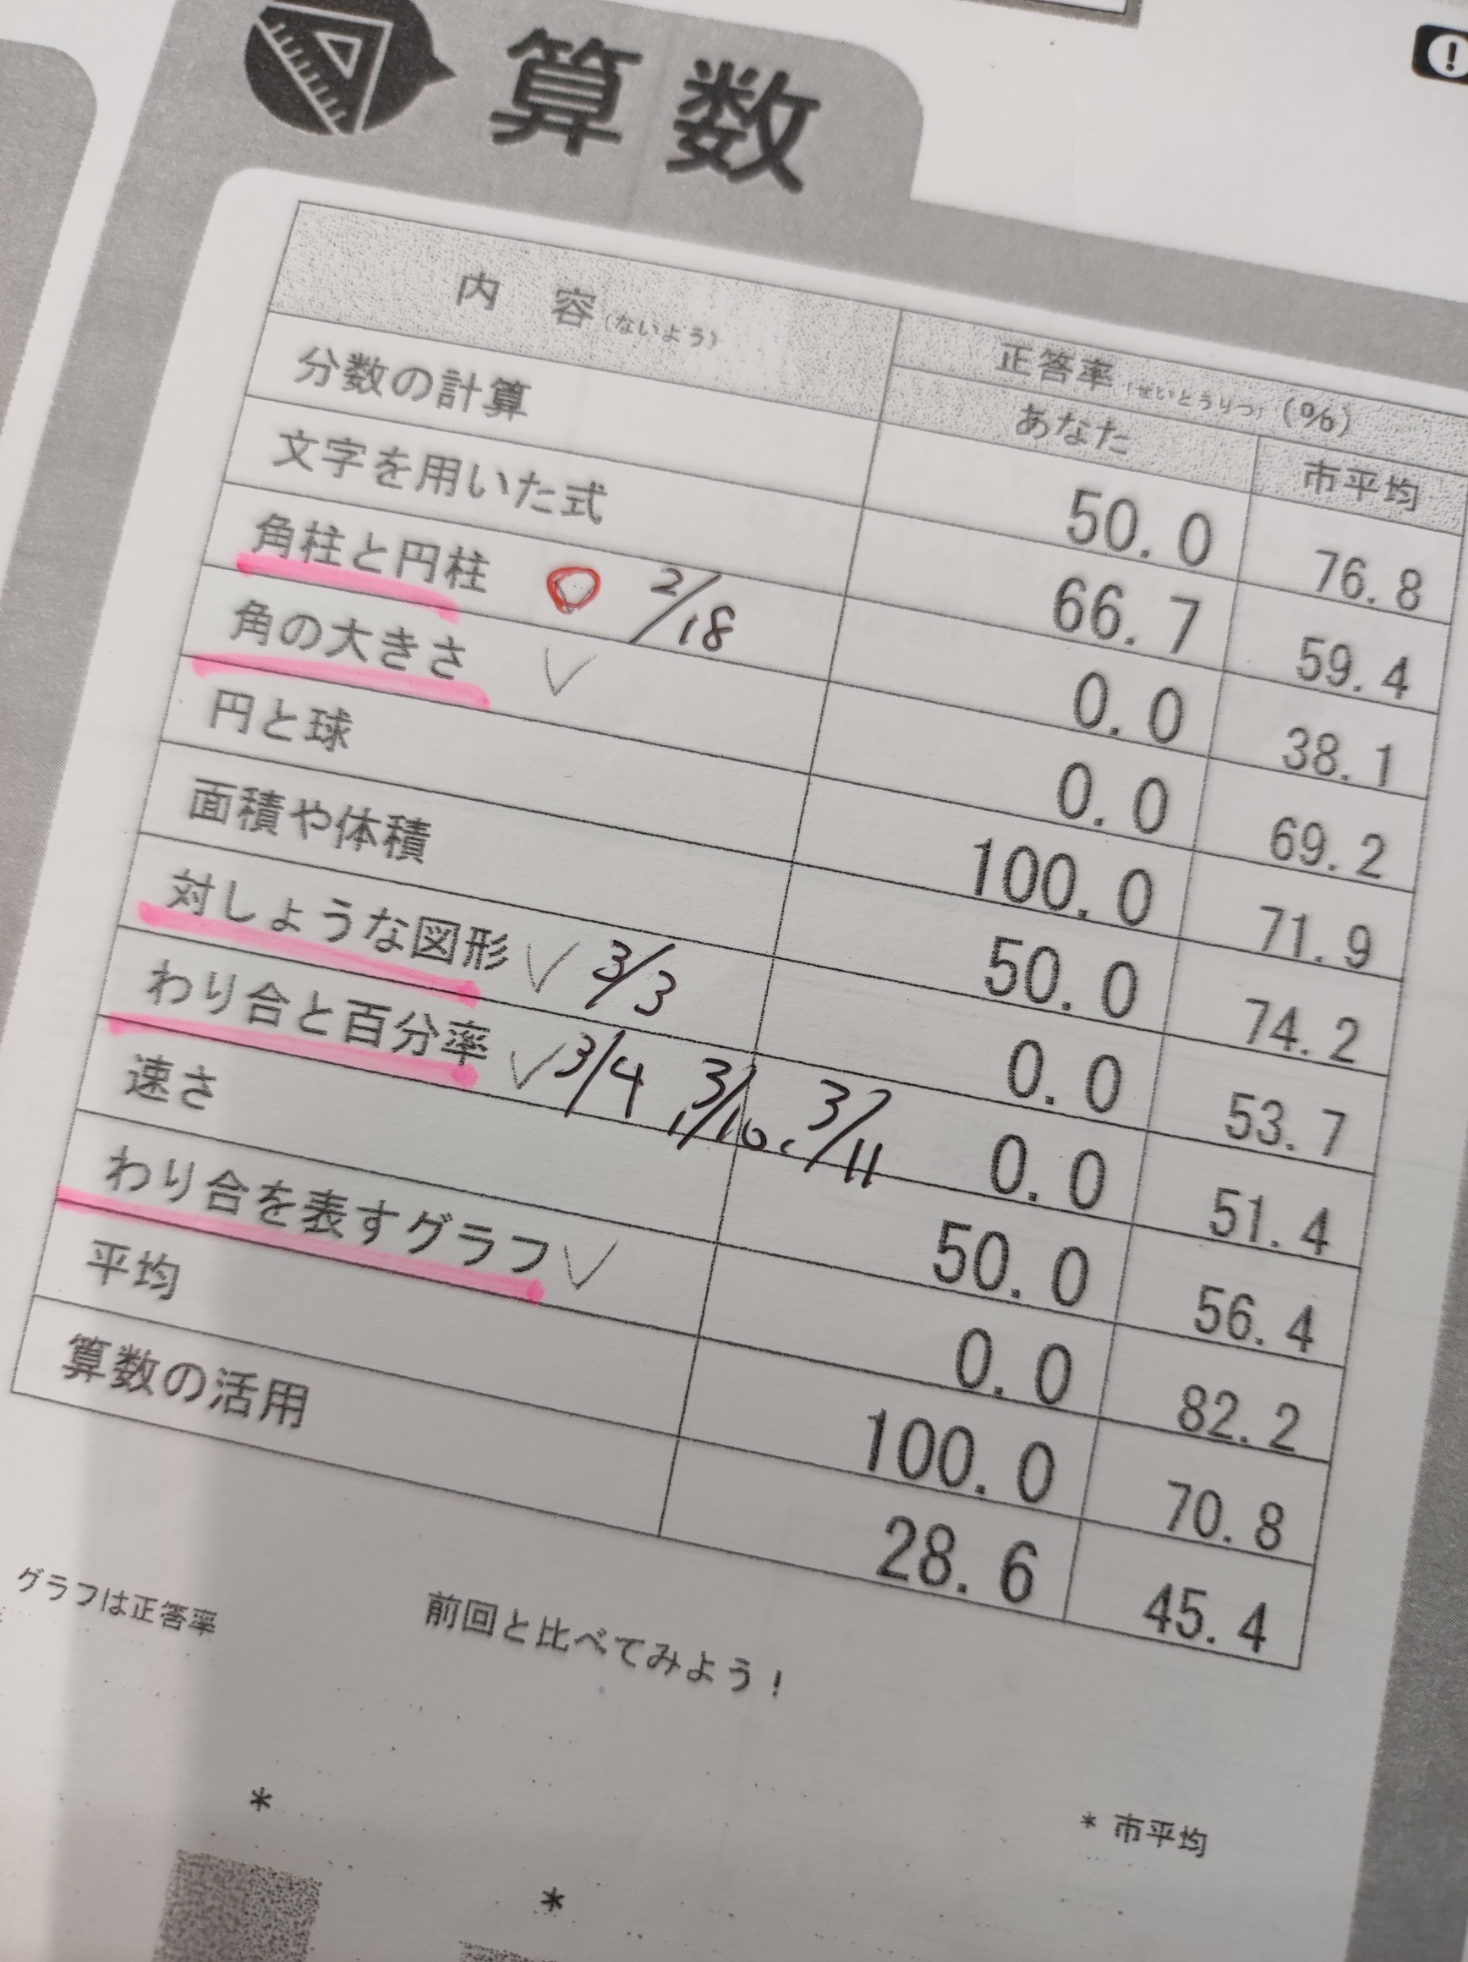 算数
内容(ないよう) 正答率(せいとうりつ)(%)
あなた 市平均
分数の計算 50.0 76.8
文字を用いた式 66.7 59.4
角柱と円柱 2/18 0.0 38.1
角の大きさ 0.0 69.2
円と球 100.0 71.9
面積や体積 50.0 74.2
対しょうな図形 3/3 0.0 53.7
わり合と百分率 3/4, 3/10, 3/11 0.0 51.4
速さ 50.0 56.4
わり合を表すグラフ 0.0 82.2
平均 100.0 70.8
算数の活用 28.6 45.4
グラフは正答率
前回と比べてみよう!
* 市平均
*
*